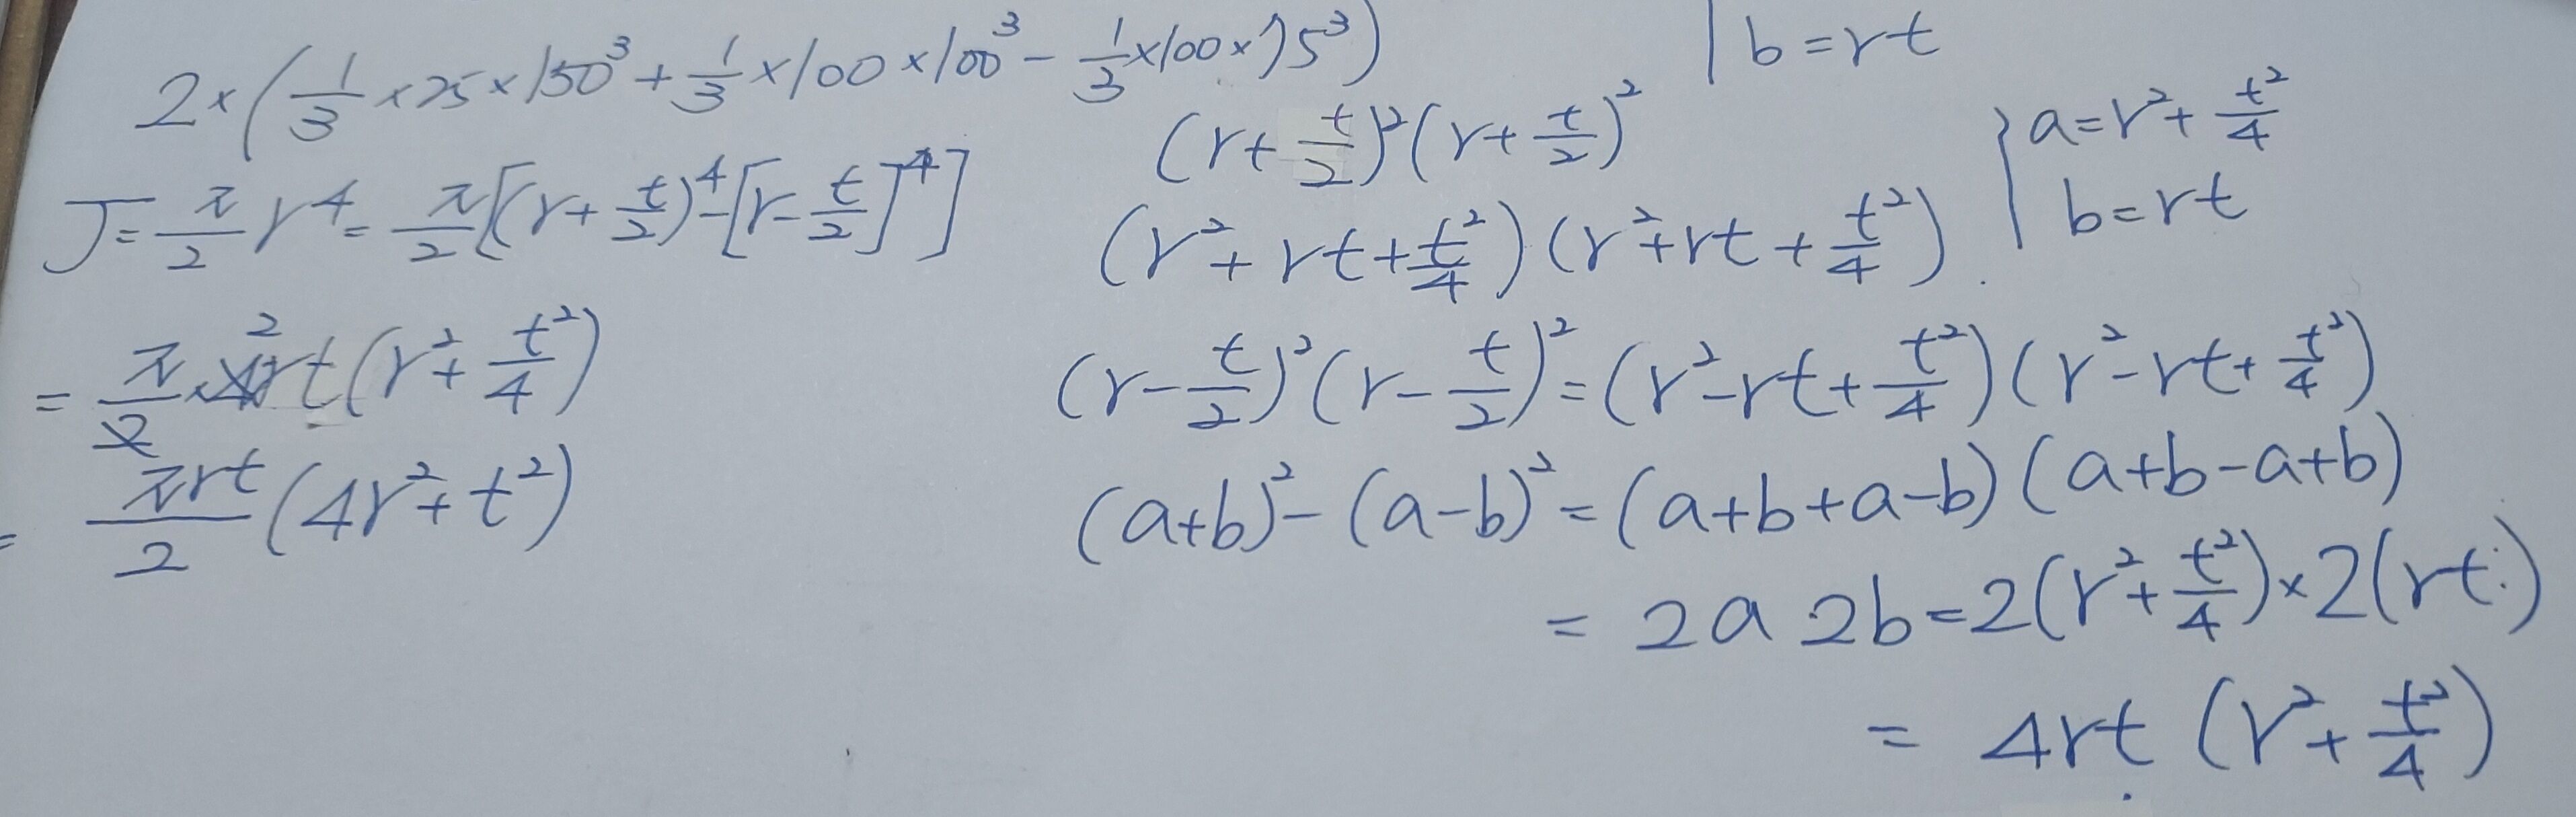 2×(1/3×25×150³+1/3×100×100³-1/3×100×75³)
J=π/2 r⁴=π/2[(r+t/2)⁴-[r-t/2]⁴]
=π/2·4rt(r²+t²/4)
2
=πrt/2(4r²+t²)
b=rt
(r+t/2)²(r+t/2)²
{a=r²+t²/4
b=rt
(r²+rt+t²/4)(r²+rt+t²/4)
(r-t/2)²(r-t/2)²=(r²-rt+t²/4)(r²-rt+t²/4)
(a+b)²-(a-b)²=(a+b+a-b)(a+b-a+b)
=2a 2b=2(r²+t²/4)×2(rt)
=4rt(r²+t²/4)